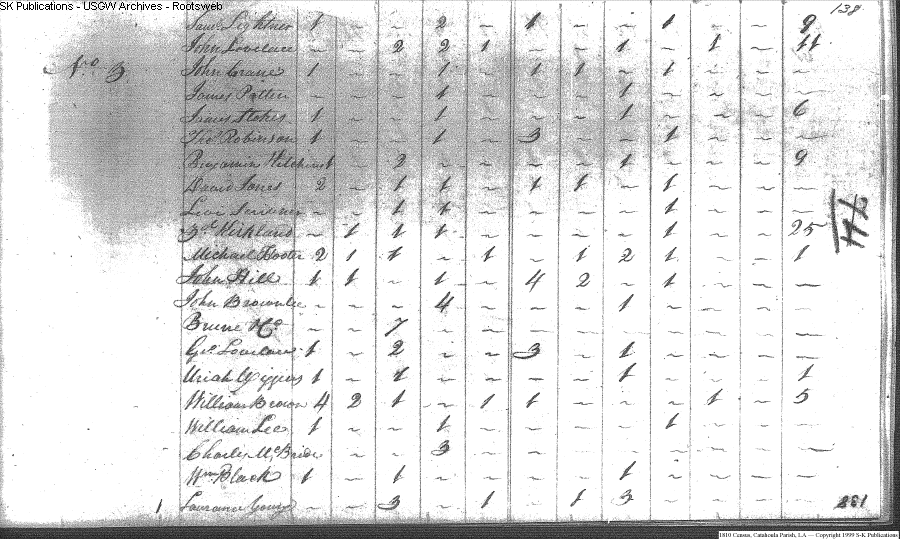 SK Publications - USGW Archives - Rootsweb
138
Sam Lightner 1 ~ ~ 2 ~ 1 ~ ~ 1 ~ ~ 9
John Lovelace ~ ~ 2 2 1 ~ ~ 1 ~ 1 ~ 11
fro 3 John Crane 1 ~ ~ 1 ~ 1 1 ~ 1 ~ ~ ~
James Patten ~ ~ ~ 1 ~ ~ ~ 1 ~ ~ ~ ~
Stokes 1 ~ ~ 1 ~ ~ ~ 1 ~ ~ ~ 6
Thos Robinson 1 ~ ~ 1 ~ 3 ~ ~ 1 ~ ~ ~
Benjamin 1 ~ 2 ~ ~ ~ ~ 1 ~ ~ ~ 9
David Jones 2 ~ 1 1 ~ 1 1 ~ 1 ~ ~ ~
~ ~ 1 1 ~ ~ ~ ~ 1 ~ ~ ~
Kirkland ~ 1 1 1 ~ ~ ~ ~ 1 ~ ~ 25
Michael Hooter 2 1 1 ~ 1 ~ 1 2 1 ~ ~ 1
John Hill 1 1 ~ 1 ~ 4 2 ~ 1 ~ ~ ~
John Brownlee ~ ~ ~ 4 ~ ~ ~ 1 ~ ~ ~ ~
~ ~ 7 ~ ~ ~ ~ ~ ~ ~ ~ ~
Geo. Lovelace 1 ~ 2 ~ ~ 3 ~ 1 ~ ~ ~ ~
Uriah 1 ~ 1 ~ ~ ~ ~ 1 ~ ~ ~ 1
William Brown 4 2 1 ~ 1 1 ~ ~ ~ 1 ~ 5
William Lee 1 ~ ~ 1 ~ ~ ~ ~ 1 ~ ~ ~
Charles McBride ~ ~ ~ 3 ~ ~ ~ ~ ~ ~ ~ ~
Wm Black 1 ~ 1 ~ ~ ~ ~ 1 ~ ~ ~ ~
1 ~ ~ 3 ~ 1 ~ 1 3 ~ ~ ~ 281
74
1810 Census, Catahoula Parish, LA — Copyright 1999 S-K Publications